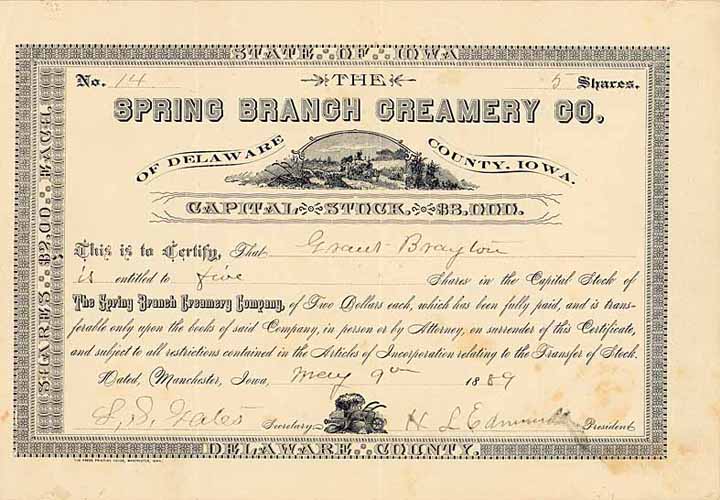 STATE OF IOWA
No. 14 THE 5 Shares.
SPRING BRANCH CREAMERY CO.
OF DELAWARE COUNTY, IOWA.
CAPITAL STOCK, $3,000.
SHARES $2.00 EACH.
This is to Certify, That Grant Brayton
is entitled to five Shares in the Capital Stock of
The Spring Branch Creamery Company, of Two Dollars each, which has been fully paid, and is trans-
ferable only upon the books of said Company, in person or by Attorney, on surrender of this Certificate,
and subject to all restrictions contained in the Articles of Incorporation relating to the Transfer of Stock.
Dated, Manchester, Iowa, May 9th 1889
Secretary H L President
DELAWARE COUNTY.